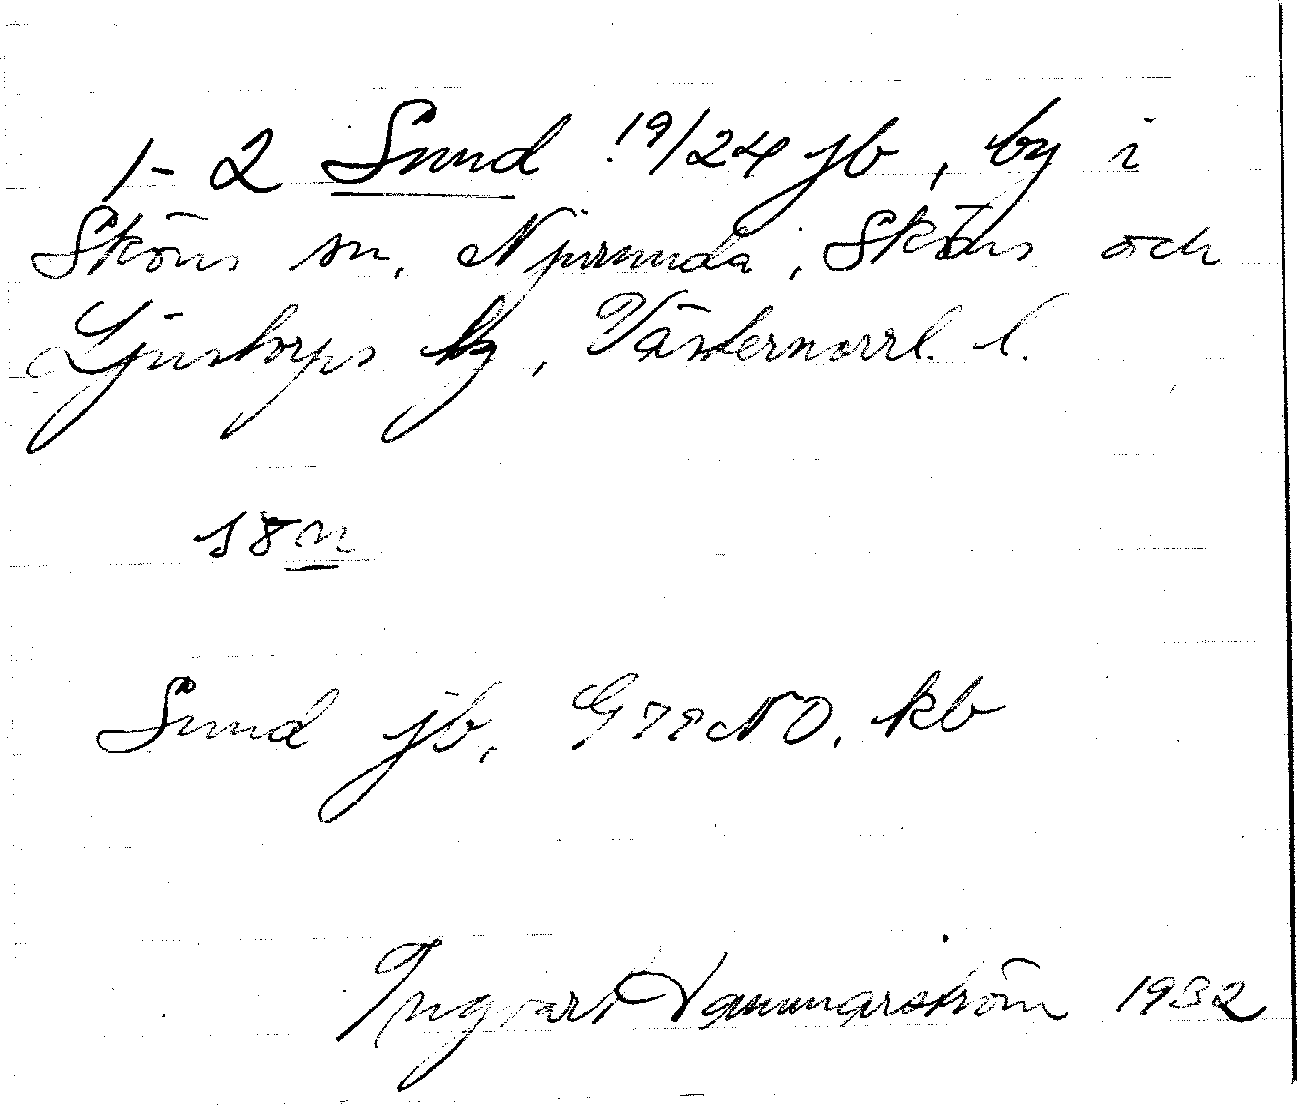 1-2 Sund 19/24 jb, by i
Sköns sn, Njurunda, Sköns och
Ljustorps tg, Västernorrl. l.
Sund jb, G NO. kb
Ingvart Hammarström 1932